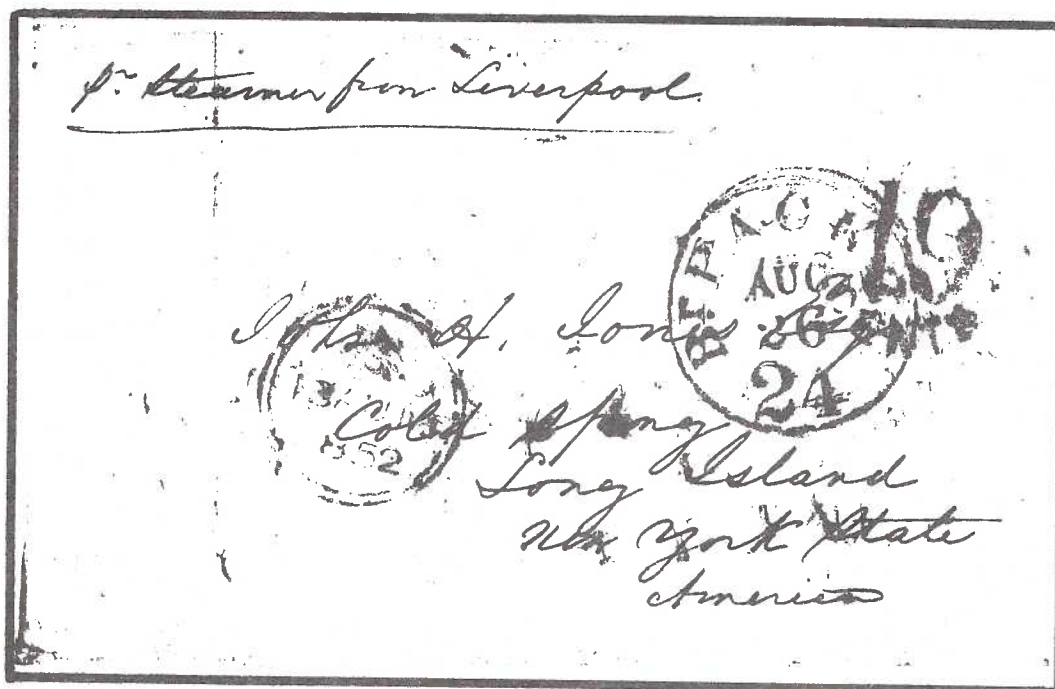 pr Steamer from Liverpool.
BR. PACK
AUG
26
24
19
John H. Jones Esq
Cold Spring
Long Island
New York State
America
1852